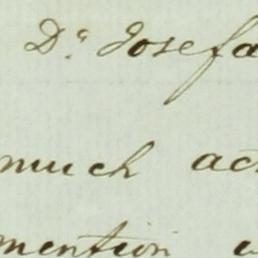 Dª Josefa
much
mention